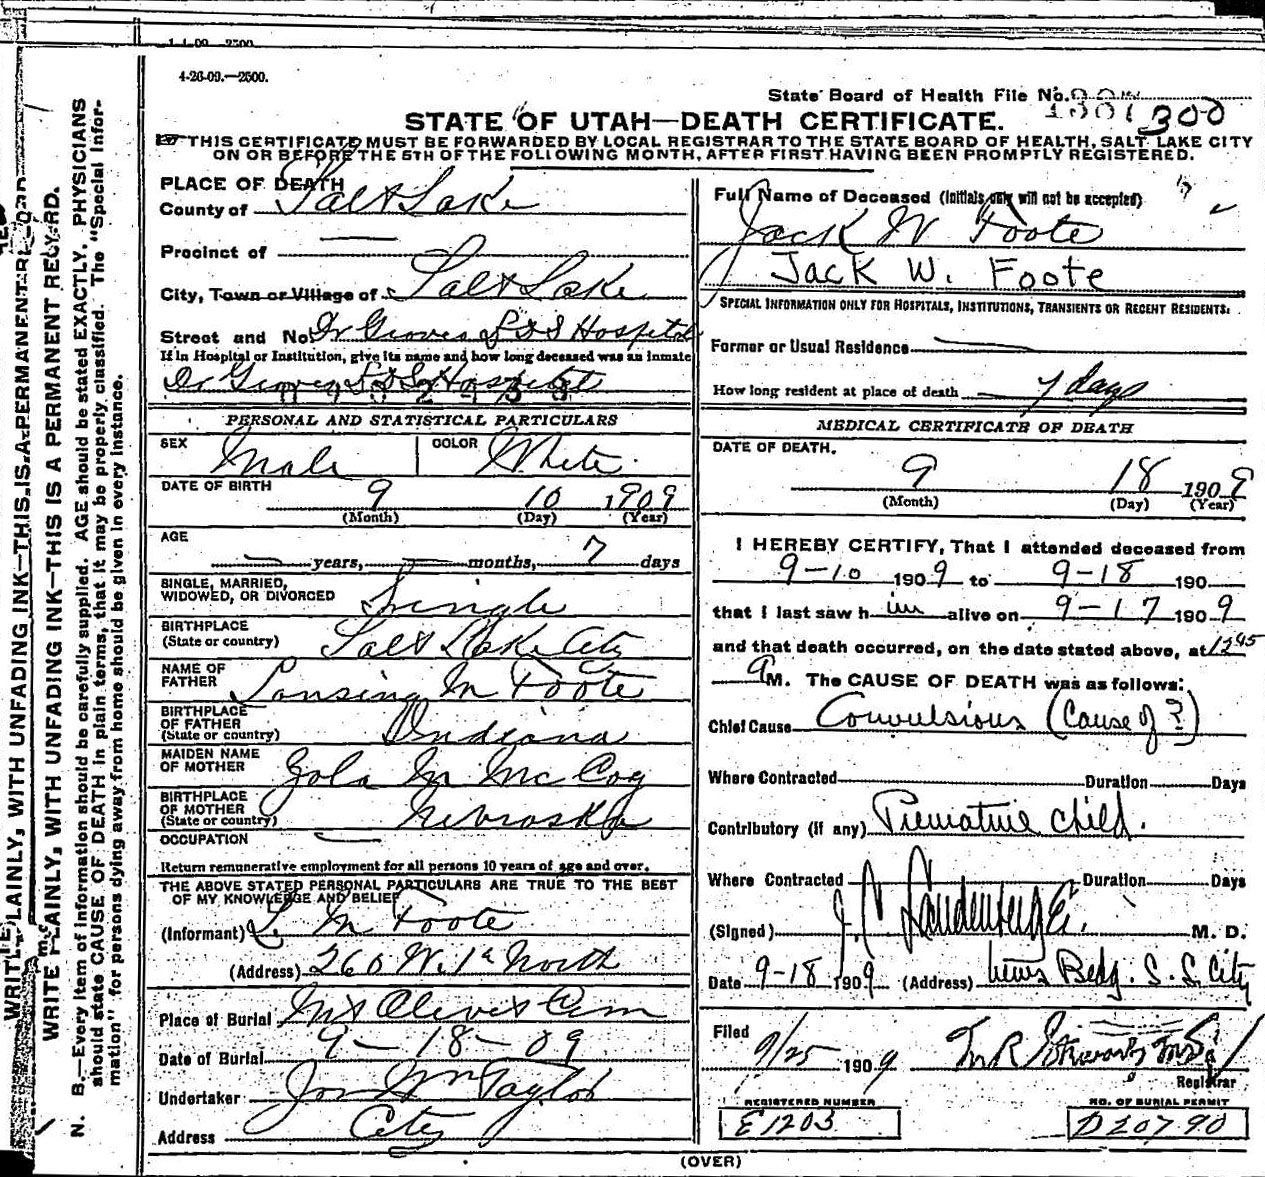 1-1-09 2500
4-26-09.—2500.
State Board of Health File No.
1301 300
STATE OF UTAH—DEATH CERTIFICATE.
THIS CERTIFICATE MUST BE FORWARDED BY LOCAL REGISTRAR TO THE STATE BOARD OF HEALTH, SALT LAKE CITY
ON OR BEFORE THE 5TH OF THE FOLLOWING MONTH, AFTER FIRST HAVING BEEN PROMPTLY REGISTERED.
PLACE OF DEATH
County of Salt Lake
Precinct of
City, Town or Village of Salt Lake
Street and No. Dr Groves L D S Hospital
If in Hospital or Institution, give its name and how long deceased was an inmate
Dr Groves L D S Hospital
PERSONAL AND STATISTICAL PARTICULARS
SEX Male COLOR White
DATE OF BIRTH 9 10 1909
(Month) (Day) (Year)
AGE
years, months, 7 days
SINGLE, MARRIED,
WIDOWED, OR DIVORCED Single
BIRTHPLACE
(State or country) Salt Lake City
NAME OF
FATHER Lansing M Foote
BIRTHPLACE
OF FATHER
(State or country) Indiana
MAIDEN NAME
OF MOTHER Zola M McCoy
BIRTHPLACE
OF MOTHER
(State or country) Nebraska
OCCUPATION
Return remunerative employment for all persons 10 years of age and over.
THE ABOVE STATED PERSONAL PARTICULARS ARE TRUE TO THE BEST
OF MY KNOWLEDGE AND BELIEF
(Informant) L. M Foote
(Address) 260 W. 1st North
Place of Burial Mt Olivet Cem
Date of Burial 9-18-09
Undertaker Jos Wm Taylor
Address City
Full Name of Deceased (Initials only will not be accepted)
Jack W Foote
Jack W. Foote
SPECIAL INFORMATION ONLY FOR HOSPITALS, INSTITUTIONS, TRANSIENTS OR RECENT RESIDENTS:
Former or Usual Residence
How long resident at place of death 7 days
MEDICAL CERTIFICATE OF DEATH
DATE OF DEATH.
9 18 1909
(Month) (Day) (Year)
I HEREBY CERTIFY, That I attended deceased from
9-10 1909 to 9-18 190
that I last saw him alive on 9-17 1909
and that death occurred, on the date stated above, at 12 45
a M. The CAUSE OF DEATH was as follows:
Chief Cause Convulsions (Cause of?)
Where Contracted Duration Days
Contributory (if any) Premature child.
Where Contracted Duration Days
(Signed) J. C Landenberger. M. D.
Date 9-18 1909 (Address) News Bldg. S. L. City
Filed
9/25 1909 M R Stewart MD
Registrar
REGISTERED NUMBER
E1203
NO. OF BURIAL PERMIT
D20790
(OVER)
WRITE PLAINLY, WITH UNFADING INK—THIS IS A PERMANENT RECORD
WRITE PLAINLY, WITH UNFADING INK—THIS IS A PERMANENT RECORD.
N. B.—Every item of information should be carefully supplied. AGE should be stated EXACTLY. PHYSICIANS
should state CAUSE OF DEATH in plain terms, that it may be properly classified. The "Special Infor-
mation" for persons dying away from home should be given in every instance.